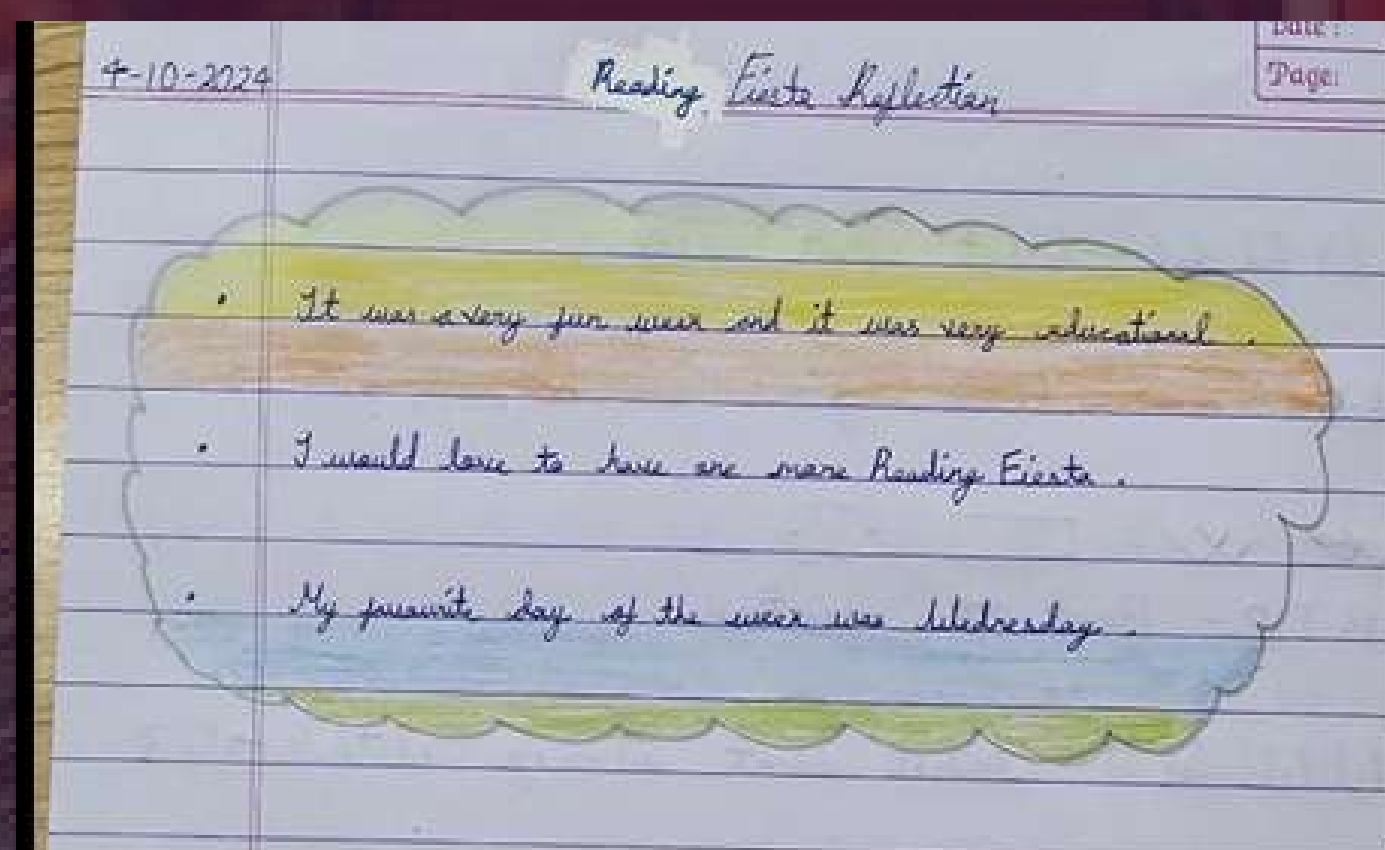 Date :
4-10-2024
Reading Fiesta Reflection
Page:
• It was a very fun week and it was very educational .
• I would love to have one more Reading Fiesta .
• My favourite day of the week was Wednesday .